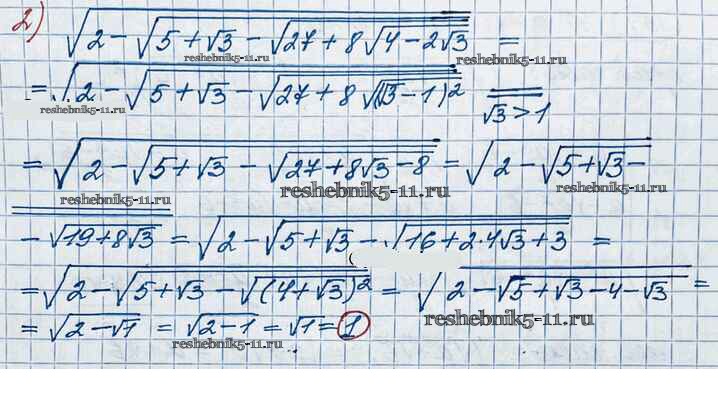 2) √(2 − √(5 + √3 − √(27 + 8√(4 − 2√3)))) =
reshebnik5-11.ru reshebnik5-11.ru
= √(2 − √(5 + √3 − √(27 + 8√((√3 − 1)²)))) √3 > 1
reshebnik5-11.ru
= √(2 − √(5 + √3 − √(27 + 8√3 − 8))) = √(2 − √(5 + √3 −
reshebnik5-11.ru reshebnik5-11.ru
− √(19 + 8√3))) = √(2 − √(5 + √3 − √(16 + 2·4√3 + 3))) =
= √(2 − √(5 + √3 − √((4 + √3)²))) = √(2 − √(5 + √3 − 4 − √3)) =
reshebnik5-11.ru
= √(2 − √1) = √(2 − 1) = √1 = 1
reshebnik5-11.ru